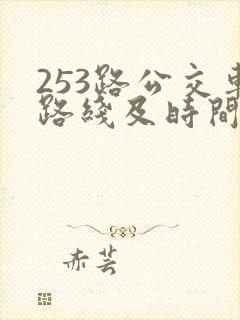 253路公交車
路綫及時間
赤芸